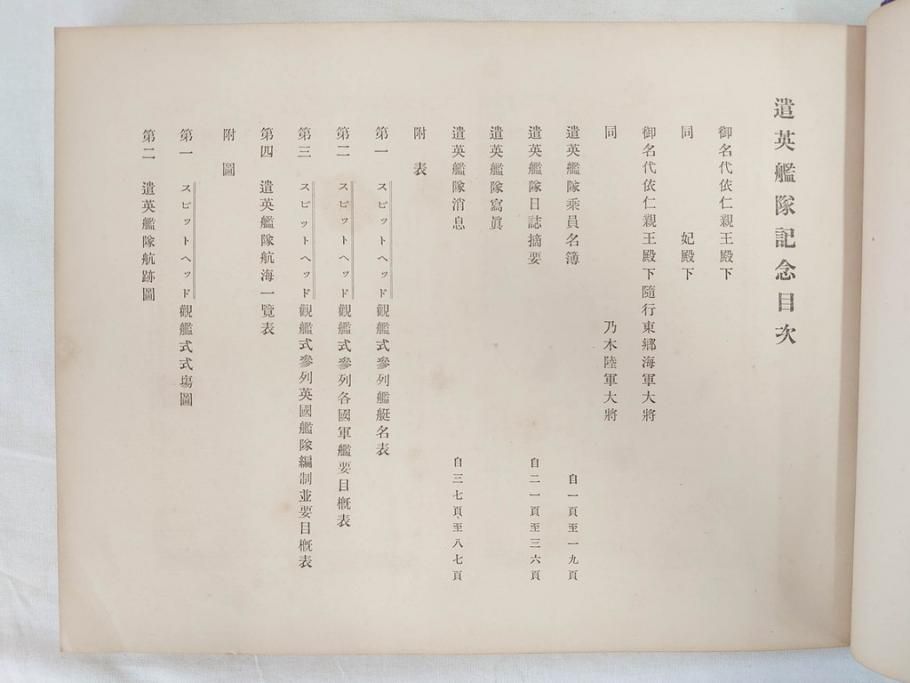 遣英艦隊記念目次
御名代依仁親王殿下
同 妃殿下
御名代依仁親王殿下隨行東鄕海軍大將
同 乃木陸軍大將
遣英艦隊乘員名簿 自一頁至一九頁
遣英艦隊日誌摘要 自二一頁至三六頁
遣英艦隊寫眞
遣英艦隊消息 自三七頁至八七頁
附表
第一 スピットヘッド觀艦式參列艦艇名表
第二 スピットヘッド觀艦式參列各國軍艦要目槪表
第三 スピットヘッド觀艦式參列英國艦隊編制並要目槪表
第四 遣英艦隊航海一覽表
附圖
第一 スピットヘッド觀艦式式塲圖
第二 遣英艦隊航跡圖